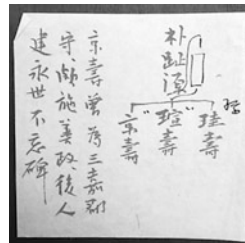 朴趾源
珪壽
瑄壽
京壽
京壽曾爲三嘉郡
守頗施善政後人
建永世不忘碑